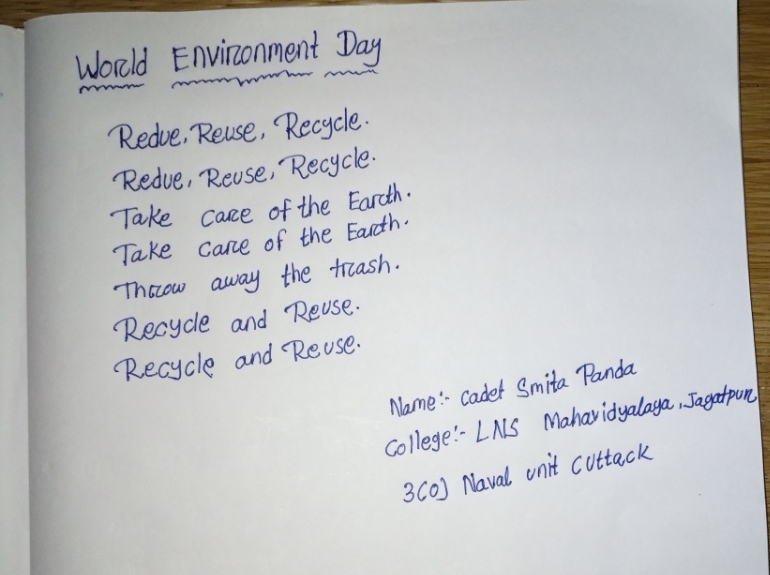 World Environment Day
Redue, Reuse, Recycle.
Redue, Reuse, Recycle.
Take care of the Earth.
Take care of the Earth.
Throw away the trash.
Recycle and Reuse.
Recycle and Reuse.
Name:- Cadet Smita Panda
College:- LNS Mahavidyalaya, Jagatpur
3(O) Naval unit Cuttack